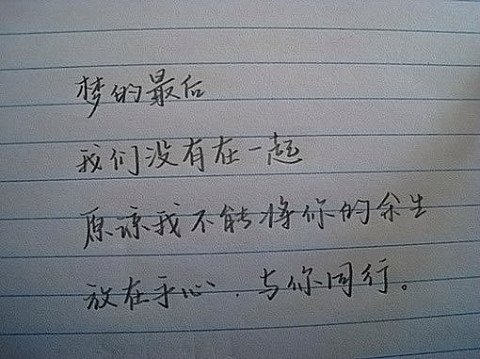 梦的最后
我们没有在一起
原谅我不能将你的余生
放在手心、与你同行。